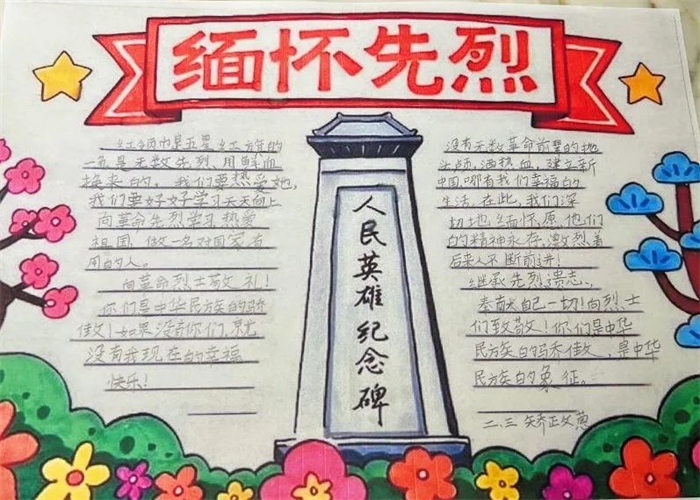 缅怀先烈
红领巾是五星红旗的
一角是无数先烈、用鲜血
换来的。我们要热爱她,
我们要好好学习天天向上
向革命先烈学习热爱
祖国,做一名对国家有
用的人。
向革命烈士敬礼!
你们是中华民族的骄
傲!如果没有你们,就
没有我现在的幸福
快乐!
人民英雄纪念碑
没有无数革命前辈的抛
头颅,洒热血,建立新
中国,哪有我们幸福的
生活,在此,我们深
切地,缅怀愿,他们
的精神永存,激烈着
后来人不断前进!
继承先烈遗志,
奉献自己一切!向烈士
们致敬!你们是中华
民族的骄傲,是中华
民族的象征。
二.三